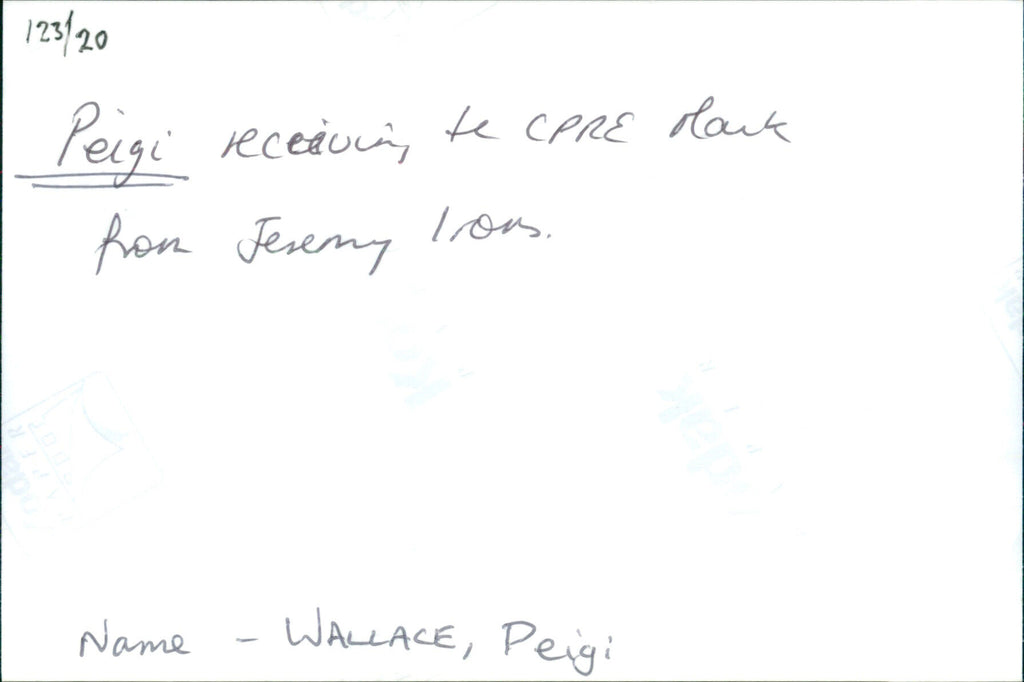 123/20
Peigi receiving the CPRE Mark
from Jeremy Irons.
Name - WALLACE, Peigi